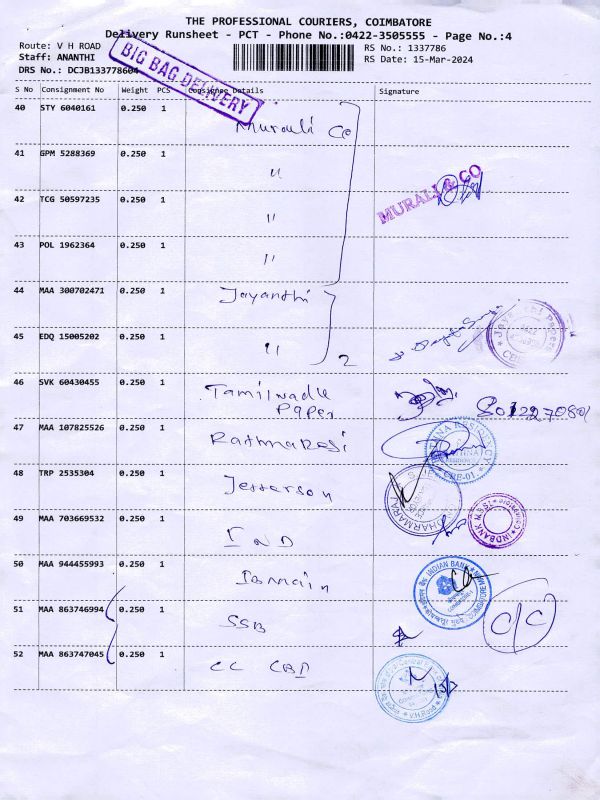 THE PROFESSIONAL COURIERS, COIMBATORE
Delivery Runsheet - PCT - Phone No.:0422-3505555 - Page No.:4
Route: V H ROAD
RS No.: 1337786
Staff: ANANTHI
RS Date: 15-Mar-2024
DRS No.: DCJB133778604
BIG BAG DELIVERY
S No Consignment No Weight PCS Consignee Details Signature
40 STY 6040161 0.250 1 Murali Co
41 GPM 5288369 0.250 1 "
42 TCG 50597235 0.250 1 " MURALI & CO
43 POL 1962364 0.250 1 "
44 MAA 300702471 0.250 1 Jayanthi
45 EDQ 15005202 0.250 1 " 2 Jayanthi Papers
46 SVK 60430455 0.250 1 Tamilnadu Paper
47 MAA 107825526 0.250 1 Rathna Resi
48 TRP 2535304 0.250 1 Jefferson
49 MAA 703669532 0.250 1 IND
50 MAA 944455993 0.250 1 INDIAN BANK
51 MAA 863746994 0.250 1 SSB C/C
52 MAA 863747045 0.250 1 CC
V.H.Road